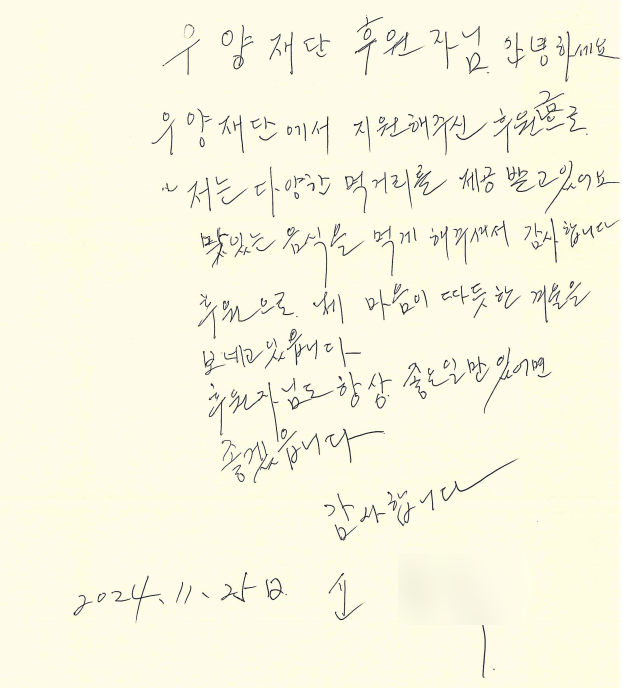 우양재단 후원자님. 안녕하세요
우양재단에서 지원해주신 후원금으로
저는 다양한 먹거리를 제공 받고있어요
맛있는 음식을 먹게 해주셔서 감사합니다
후원으로. 제 마음이 따듯한 겨울을
보네고있읍니다
후원자님도 항상 좋은일만 있어면
좋겠읍니다
감사합니다
2024. 11. 25일 신